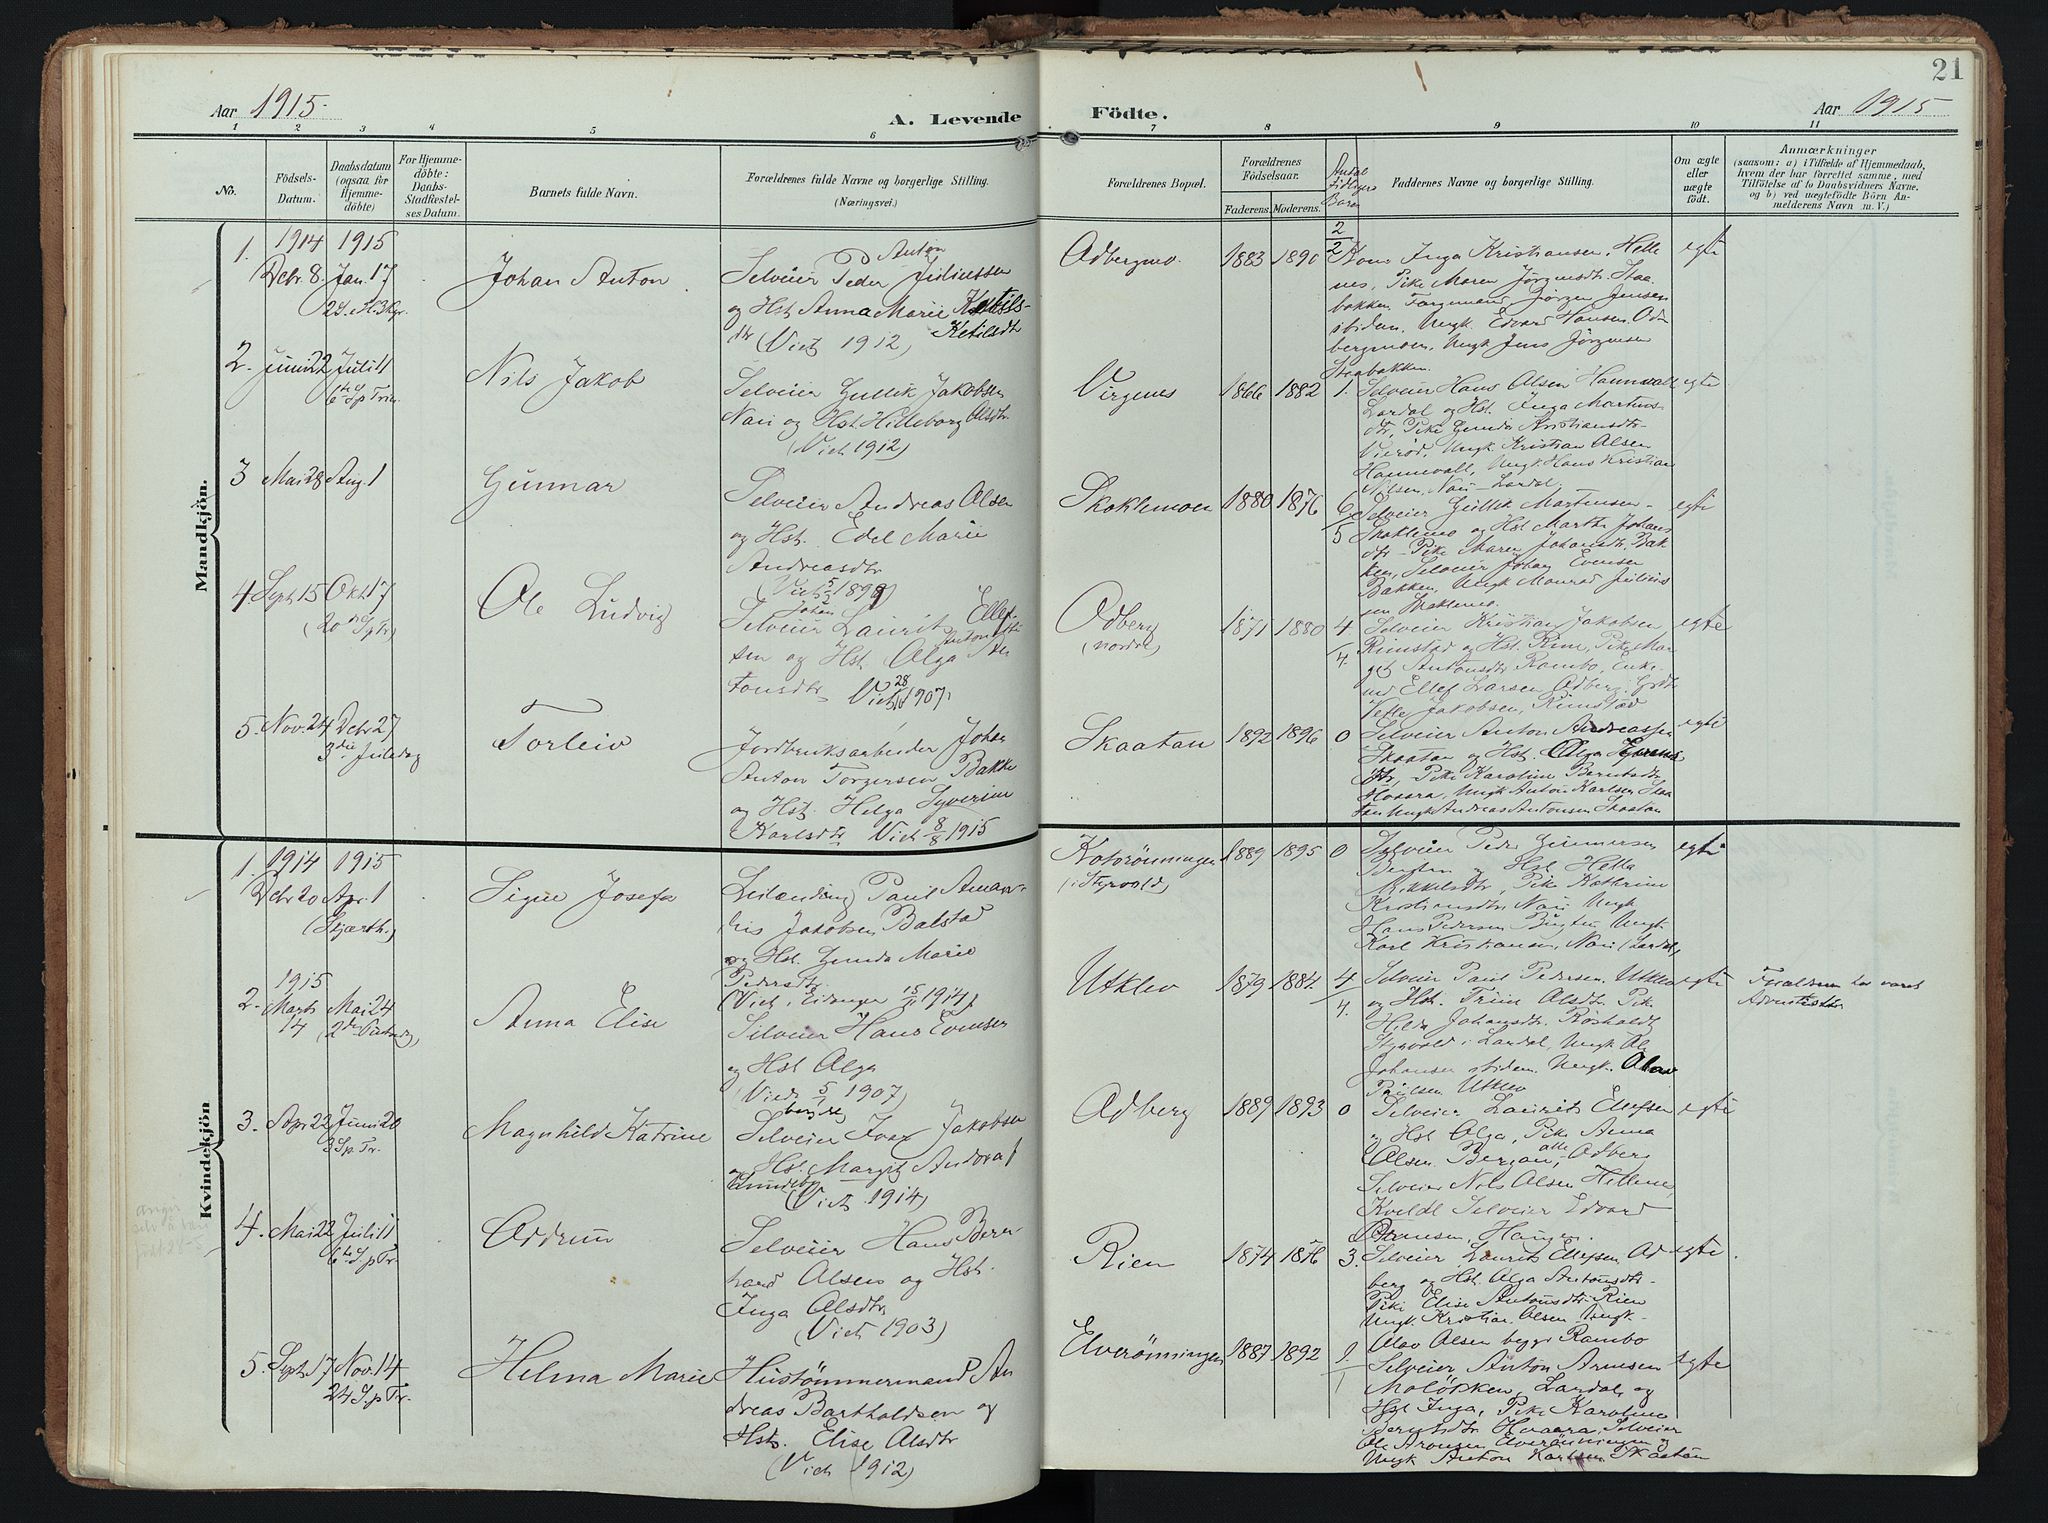 21
Aar 1915.
A. Levende Födte.
Aar 1915
1 2 3 4 5 6 7 8 9 10 11
No.
Födsels-Datum.
Daabsdatum (ogsaa for Hjemme-döbte)
For Hjemme-döbte: Daabs-Stadfæstel-ses Datum.
Barnets fulde Navn.
Forældrenes fulde Navne og borgerlige Stilling.
(Næringsvei.)
Forældrenes Bopæl.
Forældrenes Födselsaar.
Faderens. Moderens.
Antal tidligere Barn
Faddernes Navne og borgerlige Stilling.
Om ægte eller uægte födt.
Anmærkninger
(saasom: a) i Tilfælde af Hjemmedaab,
hvem der har forrettet samme, med
Tilföielse af to Daabsvidners Navne.
og b) ved uægtefödte Börn An-
melderens Navn m. V.)
Mandkjön.
1. 1914 Decbr 8. 1915 Jan. 17
Johan Anton
Selveier Peder Anton Juliussen
og Hst Anna Marie
Ketilsdtr
(Viet 1912)
Odbergmo.
1883 1890 2/2
Kone Inga Kristiansen, Helle
nes, Pike Maren Jørgensdtr. Staa
bakken, Jørgen Jensen
stidem. Ungk. Edvard Hansen. Od
bergmoen, Ungk Jens Jörgensen
Staabakken.
egte
2. Juni 22 Juli 11
6te S p Trin.
Nils Jakob
Selveier Gullik Jakobsen
Nari og Hst. Hilleborg Olsdtr.
(Viet 1912)
Virgenes
1866 1882 1.
Selveier Hans Olsen Hannevall
Lardal og Hst. Inga Martins-
dtr, Pike Gunda Kristiansdtr
Vierød, Ungk Kristian Olsen
Hannevall, Ungk Hans Kristian
Nilsen, Nari Lardal.
egte
3 Mai 28 Aug. 1
Gunnar
Selveier Andreas Olsen
og Hst. Edel Marie
Andreasdtr
Skoklemoen
1880 1876 6/5
Selveier Gullik Martinsen
Skoklemo og Hst Marthe Johans
dtr - Pike Maren Johansdtr. Bak
ken, Selveier Johan Evensen
Bakken, Ungk Monrad Julius
sen Skoklemo.
egte
4. Sept 15 Okt 17
(20de S p Tr)
Ole Ludvig
Selveier Johan Laurit Ellef
sen og Hst. Olga
tonsdtr Viet 1907.
Odberg
(nordre)
1871 1880 4/4.
Selveier Kristian Jakobsen
Rimstad og Hst. Pike Mar
git Antonsdtr Rambo, Enke-
md Ellef Larsen Odberg,
Jakobsen, Rimstad
egte
5. Nov. 24 Decbr 27
3die Juledag
Torleiv
Jordbruksarbeider Johan
Anton Torgersen Bakke
og Hst. Helga Syverine
Karlsdtr Viet 8/8 1915
Skaatan
1892 1896 0
Selveier Anton Andreassen
Skaatan og Hst. Olga
dtr, Pike Karoline Berntsdtr
Hvaara, Ungk Anton Karlsen Skaa
tan Ungk Andreas Antonsen Skaatan
egte
Kvindekjön
1. 1914 Decbr 20 1915 Apr. 1
(Skjærth.)
Signe Josefa
Leilænding Paul Aman-
dus Jakobsen Balstad
og Hst. Gunda Marie
Pedersdtr.
(Viet i Eidanger 15/11 1914)
Kotorönningen
(i Styrvold)
1889 1895 0
Selveier Peder Gunnersen
og Hst Hella
Mikkelsdtr, Pike Kathrine
Kristiansdtr Nari Ungk
Hans Pedersen Ungk
Karl Kristiansen, Nari (Lardal)
egte
2. 1915 Marts 14 Mai 24
(2den Pintsedag)
Anna Elise
Selveier Hans Evensen
og Hst Olga
(Viet 5/1 1907)
Utklev
1879 1884. 4/4.
Selveier Paul Pedersen. Utklev
og Hst. Trine Olsdtr. Pike
Hilda Johansdtr. Rösholdt
Styrvold i Lardal, Ungk Ole
Johansen stidem. Ungk. Olav
Paulsen Utklev
egte
Forældrene har været
Adventister
3. Apr 22 Juni 20
3 S p Tr.
Magnhild Katrine
Selveier Ivar Jakobsen
og Hst. Margit Andora
(Viet 1914)
Odberg
1889 1893 0
Selveier Laurits Ellefsen
og Hst Olga, Pike Anna
Olsen Bergan, alle Odberg
Selveier Nils Olsen Hellenes
Kveldl Selveier Edvard
egte
4. Mai 22 Juli 11
6te S p Tr.
Oddrun
Selveier Hans Bern
hard Olsen og Hst.
Inga Olsdtr
(Viet 1903)
Rien
1874 1876 3.
Selveier Laurits Ellefsen Od
berg og Hst. Olga Antonsdtr.
Pike Elise Antonsdtr. Rien
Ungk Kristian Olsen Ungk
Olav Olsen begge Rambo
egte
5. Sept 17 Nov. 14
24 S p Tr.
Helma Marie
Hustömmermand An
dreas Bartholdsen og
Hst. Elise Olsdtr
(Viet 1912)
Elverönningen
1887 1892 1/1
Selveier Anton Arnesen
Molökken, Lardal, og
Hst Inga, Pike Karoline
Berntsdtr Hvaara, Selveier
Ole Aronsen Elverönningen og
Ungk Anton Karlsen Skaatan
egte